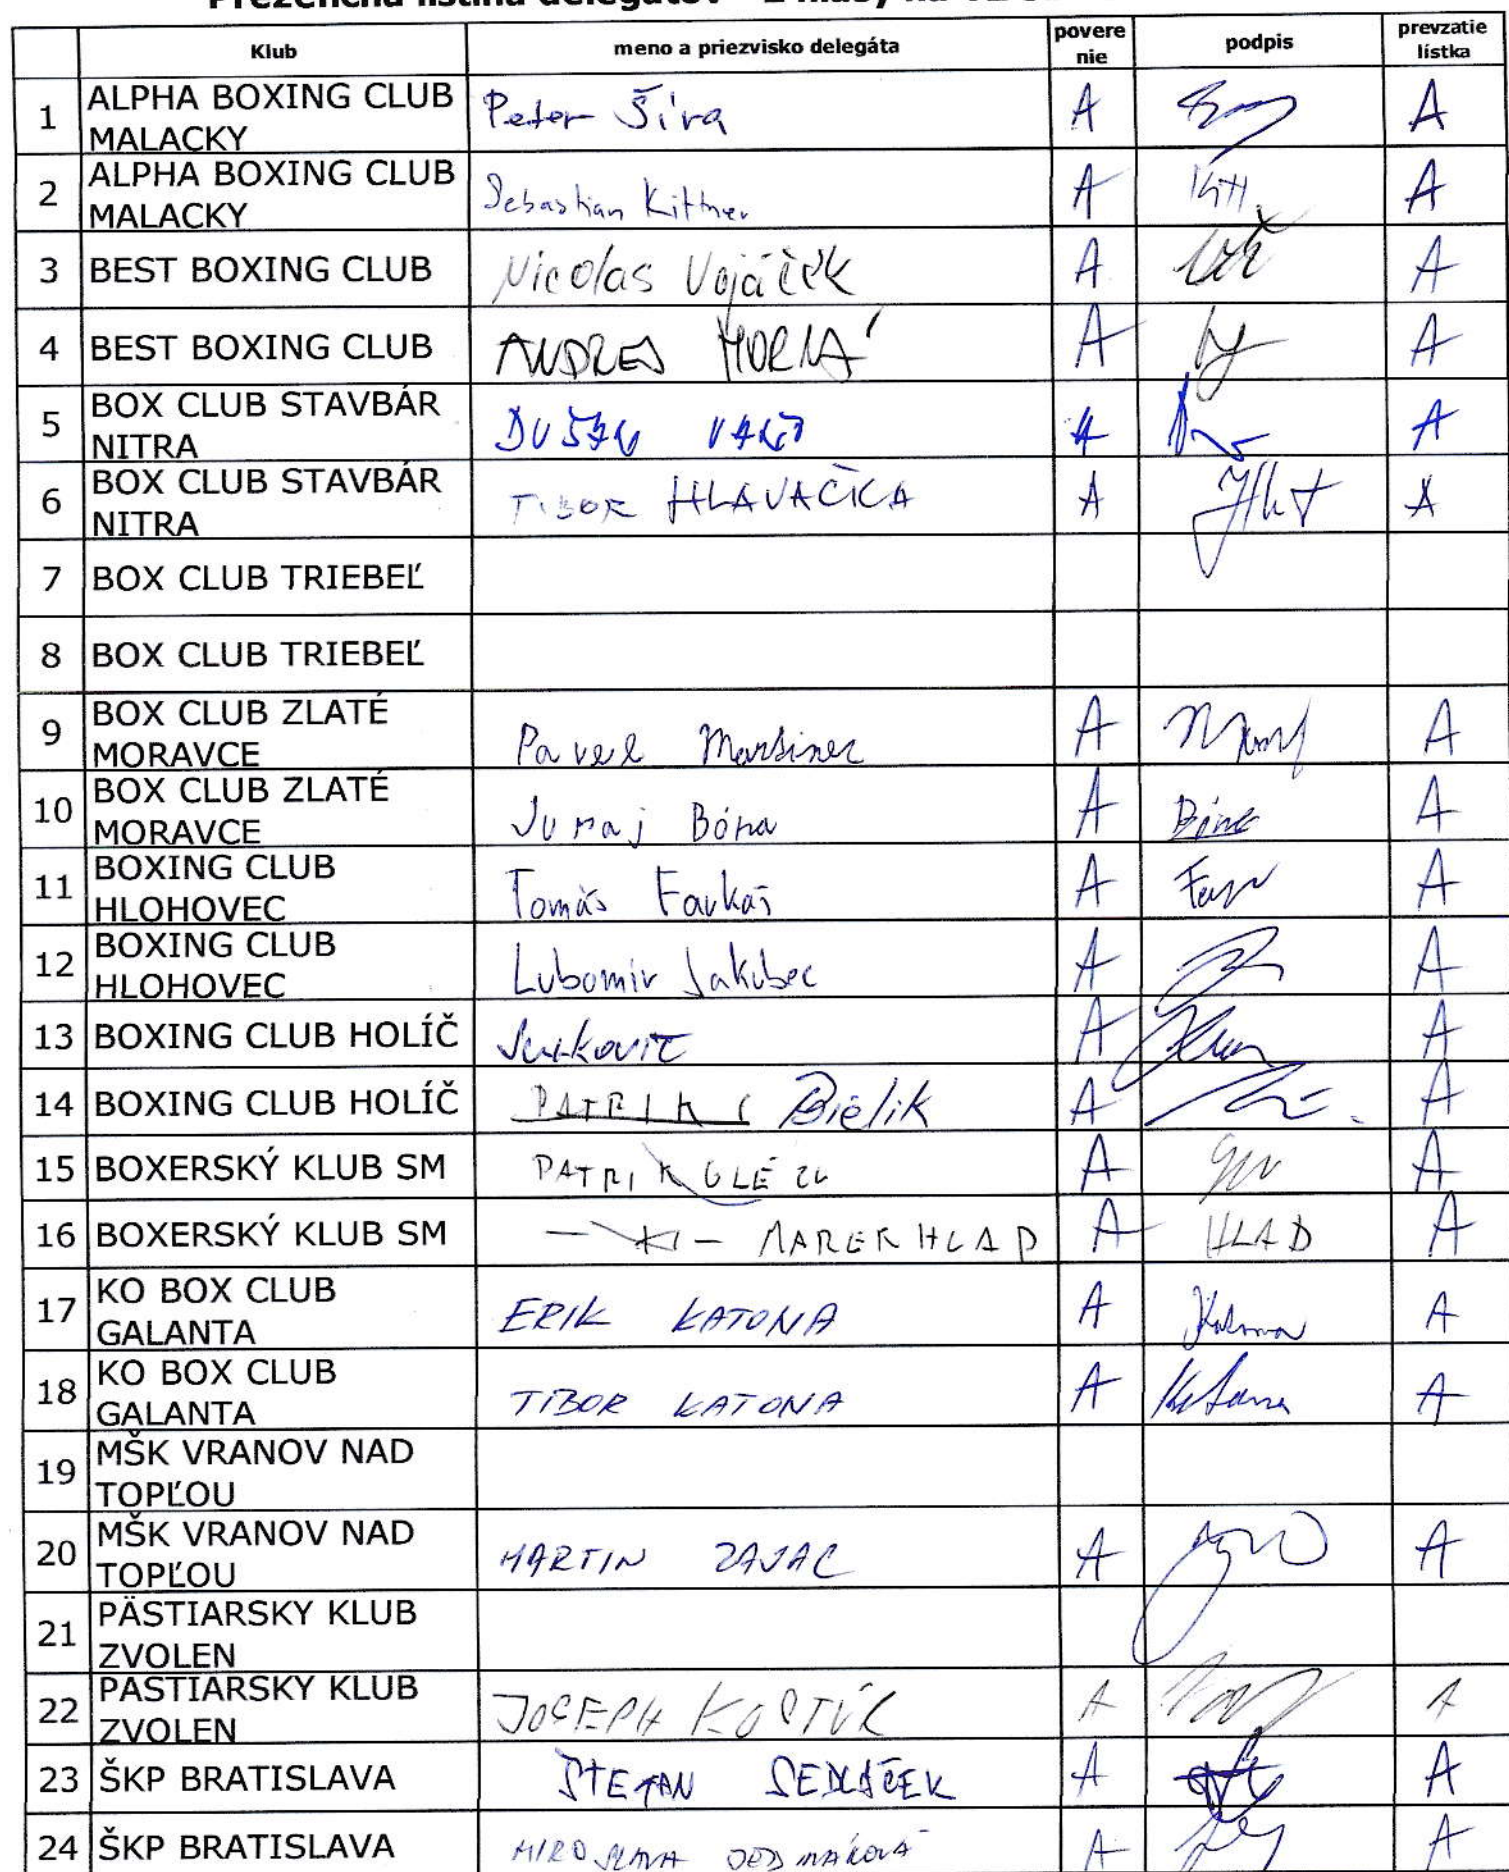 Klub meno a priezvisko delegáta povere nie podpis prevzatie lístka
1 ALPHA BOXING CLUB MALACKY Peter Šíra A A
2 ALPHA BOXING CLUB MALACKY Sebastian Kittner A Kitt. A
3 BEST BOXING CLUB Nicolas Vojáček A A
4 BEST BOXING CLUB ANDREJ A A
5 BOX CLUB STAVBÁR NITRA DUŠAN A A
6 BOX CLUB STAVBÁR NITRA TIBOR HLAVAČKA A A
7 BOX CLUB TRIEBEĽ
8 BOX CLUB TRIEBEĽ
9 BOX CLUB ZLATÉ MORAVCE Pavel Martinec A A
10 BOX CLUB ZLATÉ MORAVCE Juraj Bóna A A
11 BOXING CLUB HLOHOVEC Tomáš Farkaš A A
12 BOXING CLUB HLOHOVEC Lubomír Jakubec A A
13 BOXING CLUB HOLÍČ A A
14 BOXING CLUB HOLÍČ PATRIK Bielik A A
15 BOXERSKÝ KLUB SM PATRIK A A
16 BOXERSKÝ KLUB SM MAREK HLAD A HLAD A
17 KO BOX CLUB GALANTA ERIK KATONA A Katona A
18 KO BOX CLUB GALANTA TIBOR KATONA A Katona A
19 MŠK VRANOV NAD TOPĽOU
20 MŠK VRANOV NAD TOPĽOU MARTIN ZAJAC A A
21 PÄSTIARSKY KLUB ZVOLEN
22 PÄSTIARSKY KLUB ZVOLEN JOSEPH A A
23 ŠKP BRATISLAVA ŠTEFAN SEDLÁČEK A A
24 ŠKP BRATISLAVA MIROSLAVA A A